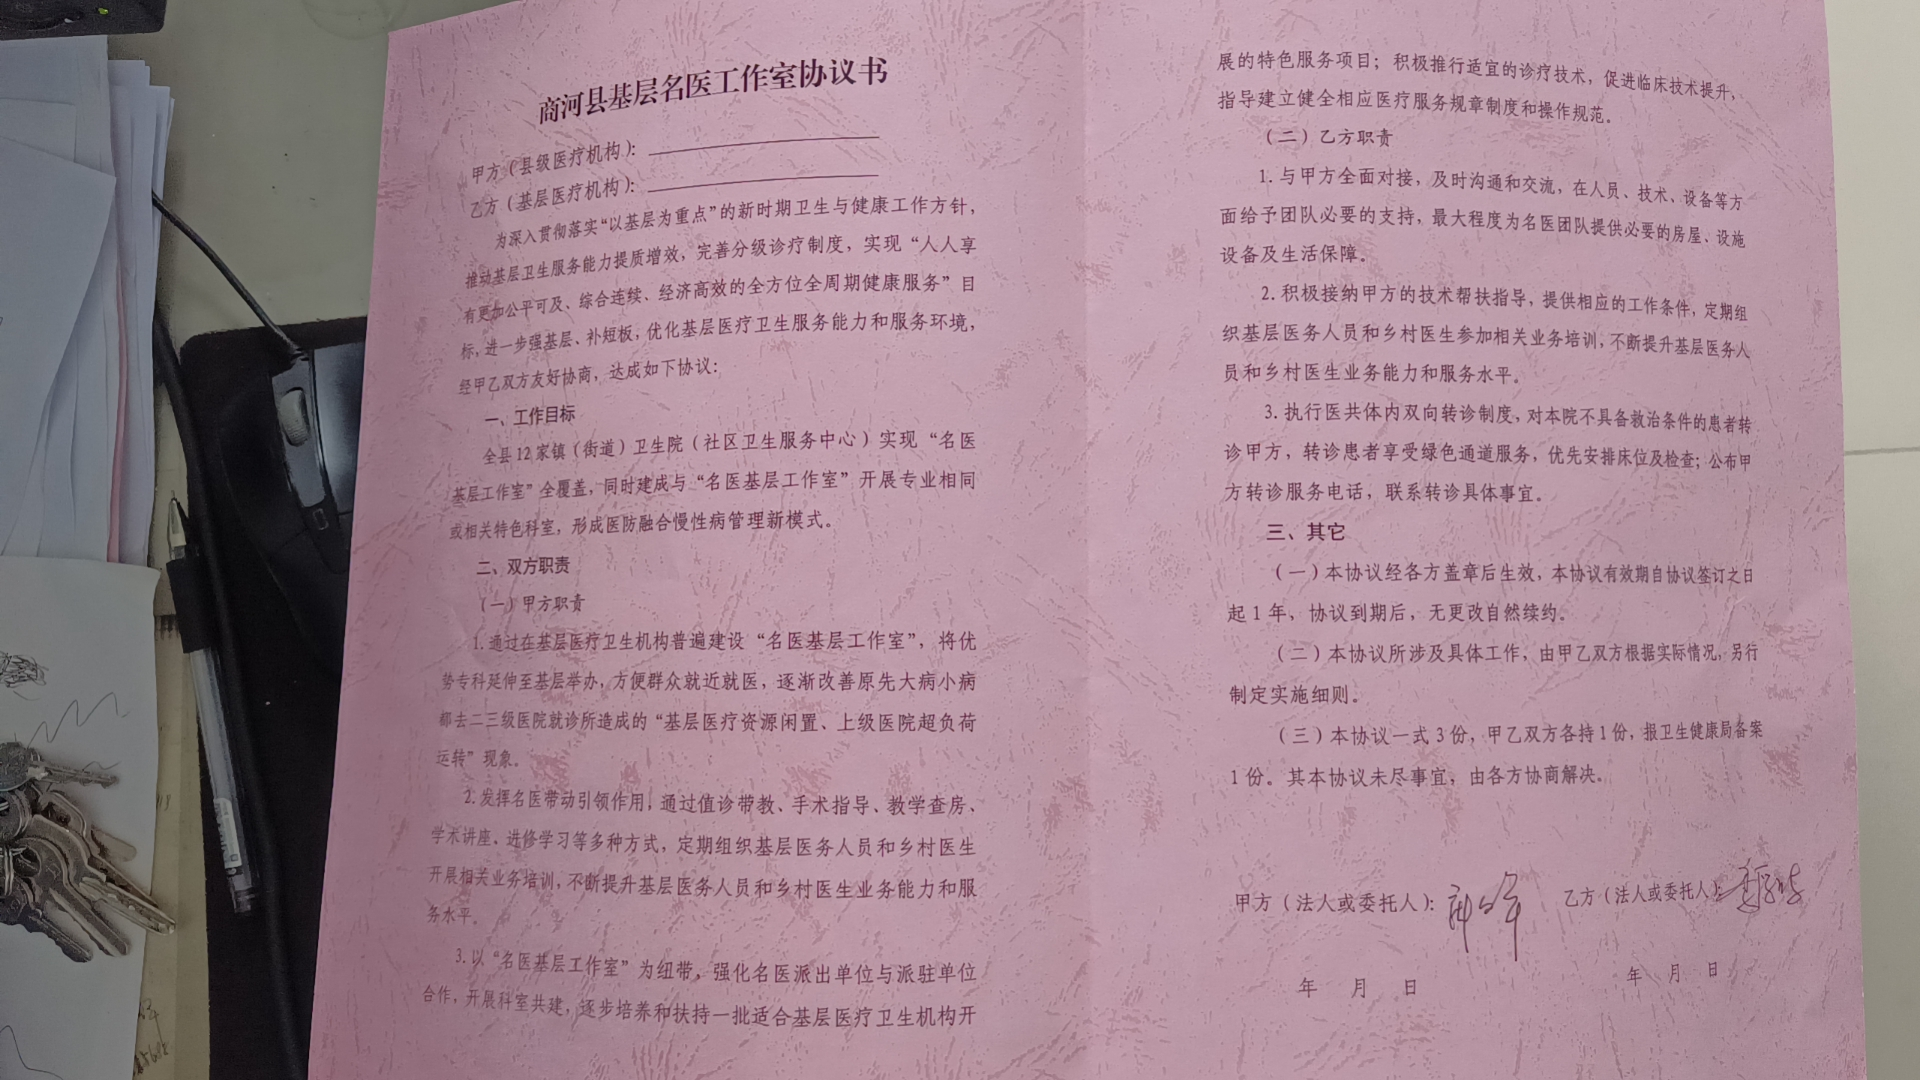 商河县基层名医工作室协议书
甲方（县级医疗机构）：
乙方（基层医疗机构）：
为深入贯彻落实“以基层为重点”的新时期卫生与健康工作方针，
推动基层卫生服务能力提质增效，完善分级诊疗制度，实现“人人享
有更加公平可及、综合连续、经济高效的全方位全周期健康服务”目
标，进一步强基层、补短板，优化基层医疗卫生服务能力和服务环境，
经甲乙双方友好协商，达成如下协议：
一、工作目标
全县12家镇（街道）卫生院（社区卫生服务中心）实现“名医
基层工作室”全覆盖，同时建成与“名医基层工作室”开展专业相同
或相关特色科室，形成医防融合慢性病管理新模式。
二、双方职责
（一）甲方职责
1.通过在基层医疗卫生机构普遍建设“名医基层工作室”，将优
势专科延伸至基层举办，方便群众就近就医，逐渐改善原先大病小病
都去二三级医院就诊所造成的“基层医疗资源闲置、上级医院超负荷
运转”现象。
2.发挥名医带动引领作用，通过值诊带教、手术指导、教学查房、
学术讲座、进修学习等多种方式，定期组织基层医务人员和乡村医生
开展相关业务培训，不断提升基层医务人员和乡村医生业务能力和服
务水平。
3.以“名医基层工作室”为纽带，强化名医派出单位与派驻单位
合作，开展科室共建，逐步培养和扶持一批适合基层医疗卫生机构开
展的特色服务项目；积极推行适宜的诊疗技术，促进临床技术提升，
指导建立健全相应医疗服务规章制度和操作规范。
（二）乙方职责
1.与甲方全面对接，及时沟通和交流，在人员、技术、设备等方
面给予团队必要的支持，最大程度为名医团队提供必要的房屋、设施
设备及生活保障。
2.积极接纳甲方的技术帮扶指导，提供相应的工作条件，定期组
织基层医务人员和乡村医生参加相关业务培训，不断提升基层医务人
员和乡村医生业务能力和服务水平。
3.执行医共体内双向转诊制度，对本院不具备救治条件的患者转
诊甲方，转诊患者享受绿色通道服务，优先安排床位及检查；公布甲
方转诊服务电话，联系转诊具体事宜。
三、其它
（一）本协议经各方盖章后生效，本协议有效期自协议签订之日
起1年，协议到期后，无更改自然续约。
（二）本协议所涉及具体工作，由甲乙双方根据实际情况，另行
制定实施细则。
（三）本协议一式3份，甲乙双方各持1份，报卫生健康局备案
1份。其本协议未尽事宜，由各方协商解决。
甲方（法人或委托人）： 乙方（法人或委托人）：
年 月 日 年 月 日